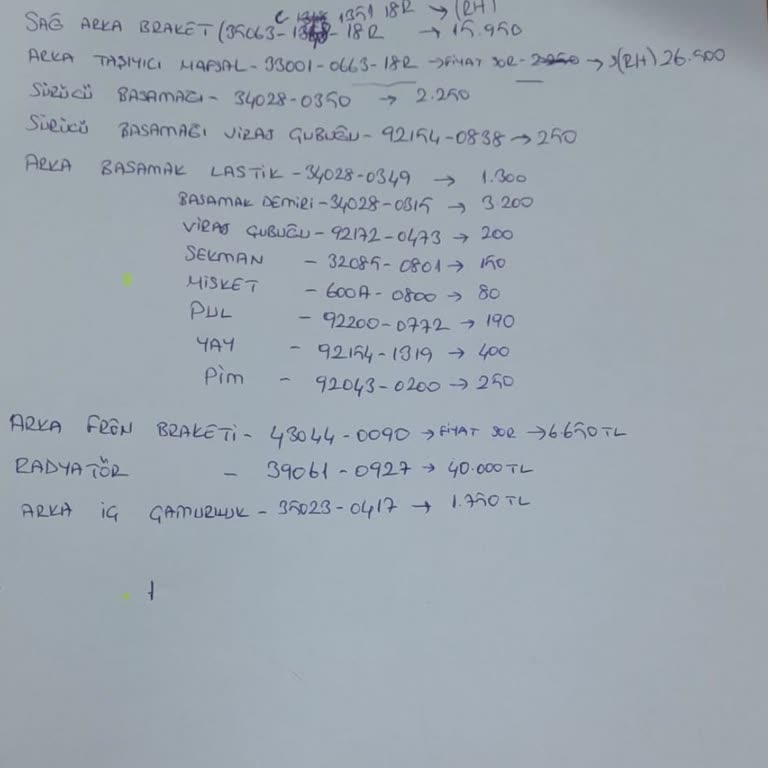 1351 18R → (RH)
SAĞ ARKA BRAKET (35063- - 18R → 15.950
ARKA TAŞIYICI MAFSAL - 33001-0663-18R → FİYAT SOR - → (RH) 26.500
SÜRÜCÜ BASAMAĞI - 34028-0350 → 2.250
SÜRÜCÜ BASAMAĞI VİRAJ ÇUBUĞU - 92154-0838 → 250
ARKA BASAMAK LASTİK - 34028-0349 → 1.300
BASAMAK DEMİRİ - 34028-0315 → 3.200
VİRAJ ÇUBUĞU - 92172-0473 → 200
SEKMAN - 32085-0801 → 150
MİSKET - 600A-0800 → 80
PUL - 92200-0772 → 190
YAY - 92154-1319 → 400
PİM - 92043-0200 → 250
ARKA FREN BRAKETİ - 43044-0090 → FİYAT SOR → 6.650 TL
RADYATÖR - 39061-0927 → 40.000 TL
ARKA İÇ ÇAMURLUK - 35023-0417 → 1.750 TL